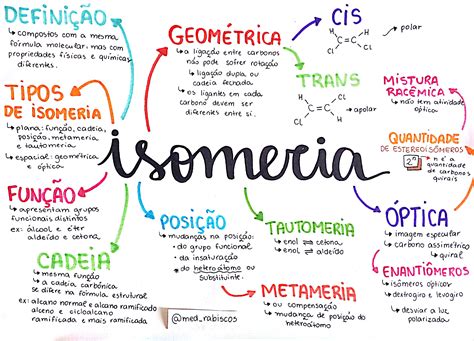 DEFINIÇÃO
↳ compostos com a mesma
fórmula molecular, mas com
propriedades físicas e químicas
diferentes.
TIPOS
DE ISOMERIA
↳ plana: função, cadeia,
posição, metameria
e tautomeria
↳ espacial: geométrica
e óptica
FUNÇÃO
↳ apresentam grupos
funcionais distintos
ex: álcool e éter
aldeído e cetona
CADEIA
↳ mesma função
↳ a cadeia carbônica
se difere na fórmula estrutural
ex: alcano normal e alcano ramificado
alceno e cicloalcano
ramificado e mais ramificado
GEOMÉTRICA
↳ a ligação entre carbonos
não pode sofrer rotação
↳ ligação dupla ou
cadeia fechada
↳ os ligantes em cada
carbono devem ser
diferentes entre si.
CIS
Cl Cl
C=C
H H
→ polar
TRANS
H Cl
C=C
Cl H
→ apolar
MISTURA
RACÊMICA
↳ não tem atividade
óptica
QUANTIDADE
DE ESTEREOISÔMEROS
2ⁿ
→ n é a
quantidade
de carbonos
quirais
isomeria
POSIÇÃO
↳ mudanças na posição:
• do grupo funcional
• da insaturação
• do heteroátomo ou
substituinte.
TAUTOMERIA
↳ enol ⇌ cetona
↳ enol ⇌ aldeído
METAMERIA
↳ ou compensação
↳ mudança de posição do
heteroátomo
ÓPTICA
↳ imagem especular
↳ carbono assimétrico
quiral
ENANTIÔMEROS
↳ isômeros ópticos
↳ dextrogiro e levogiro
↳ desviar a luz
polarizada
@med_rabiscos